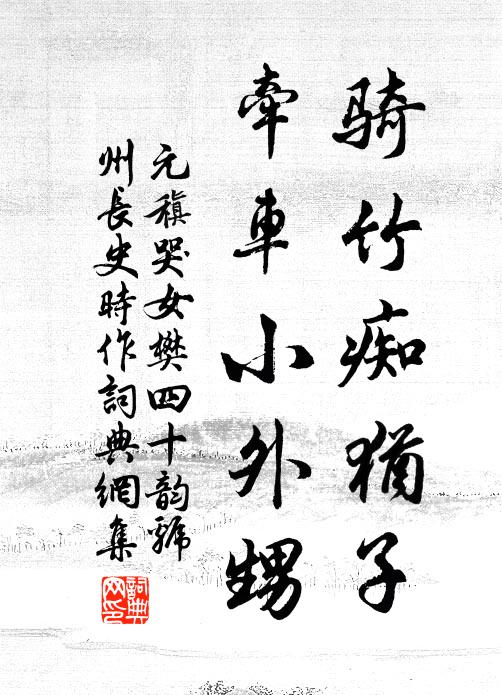 騎竹痴猶子
牽車小外甥
元稹哭女樊四十韵虢
州長史時作詞典網集
詞典
网念